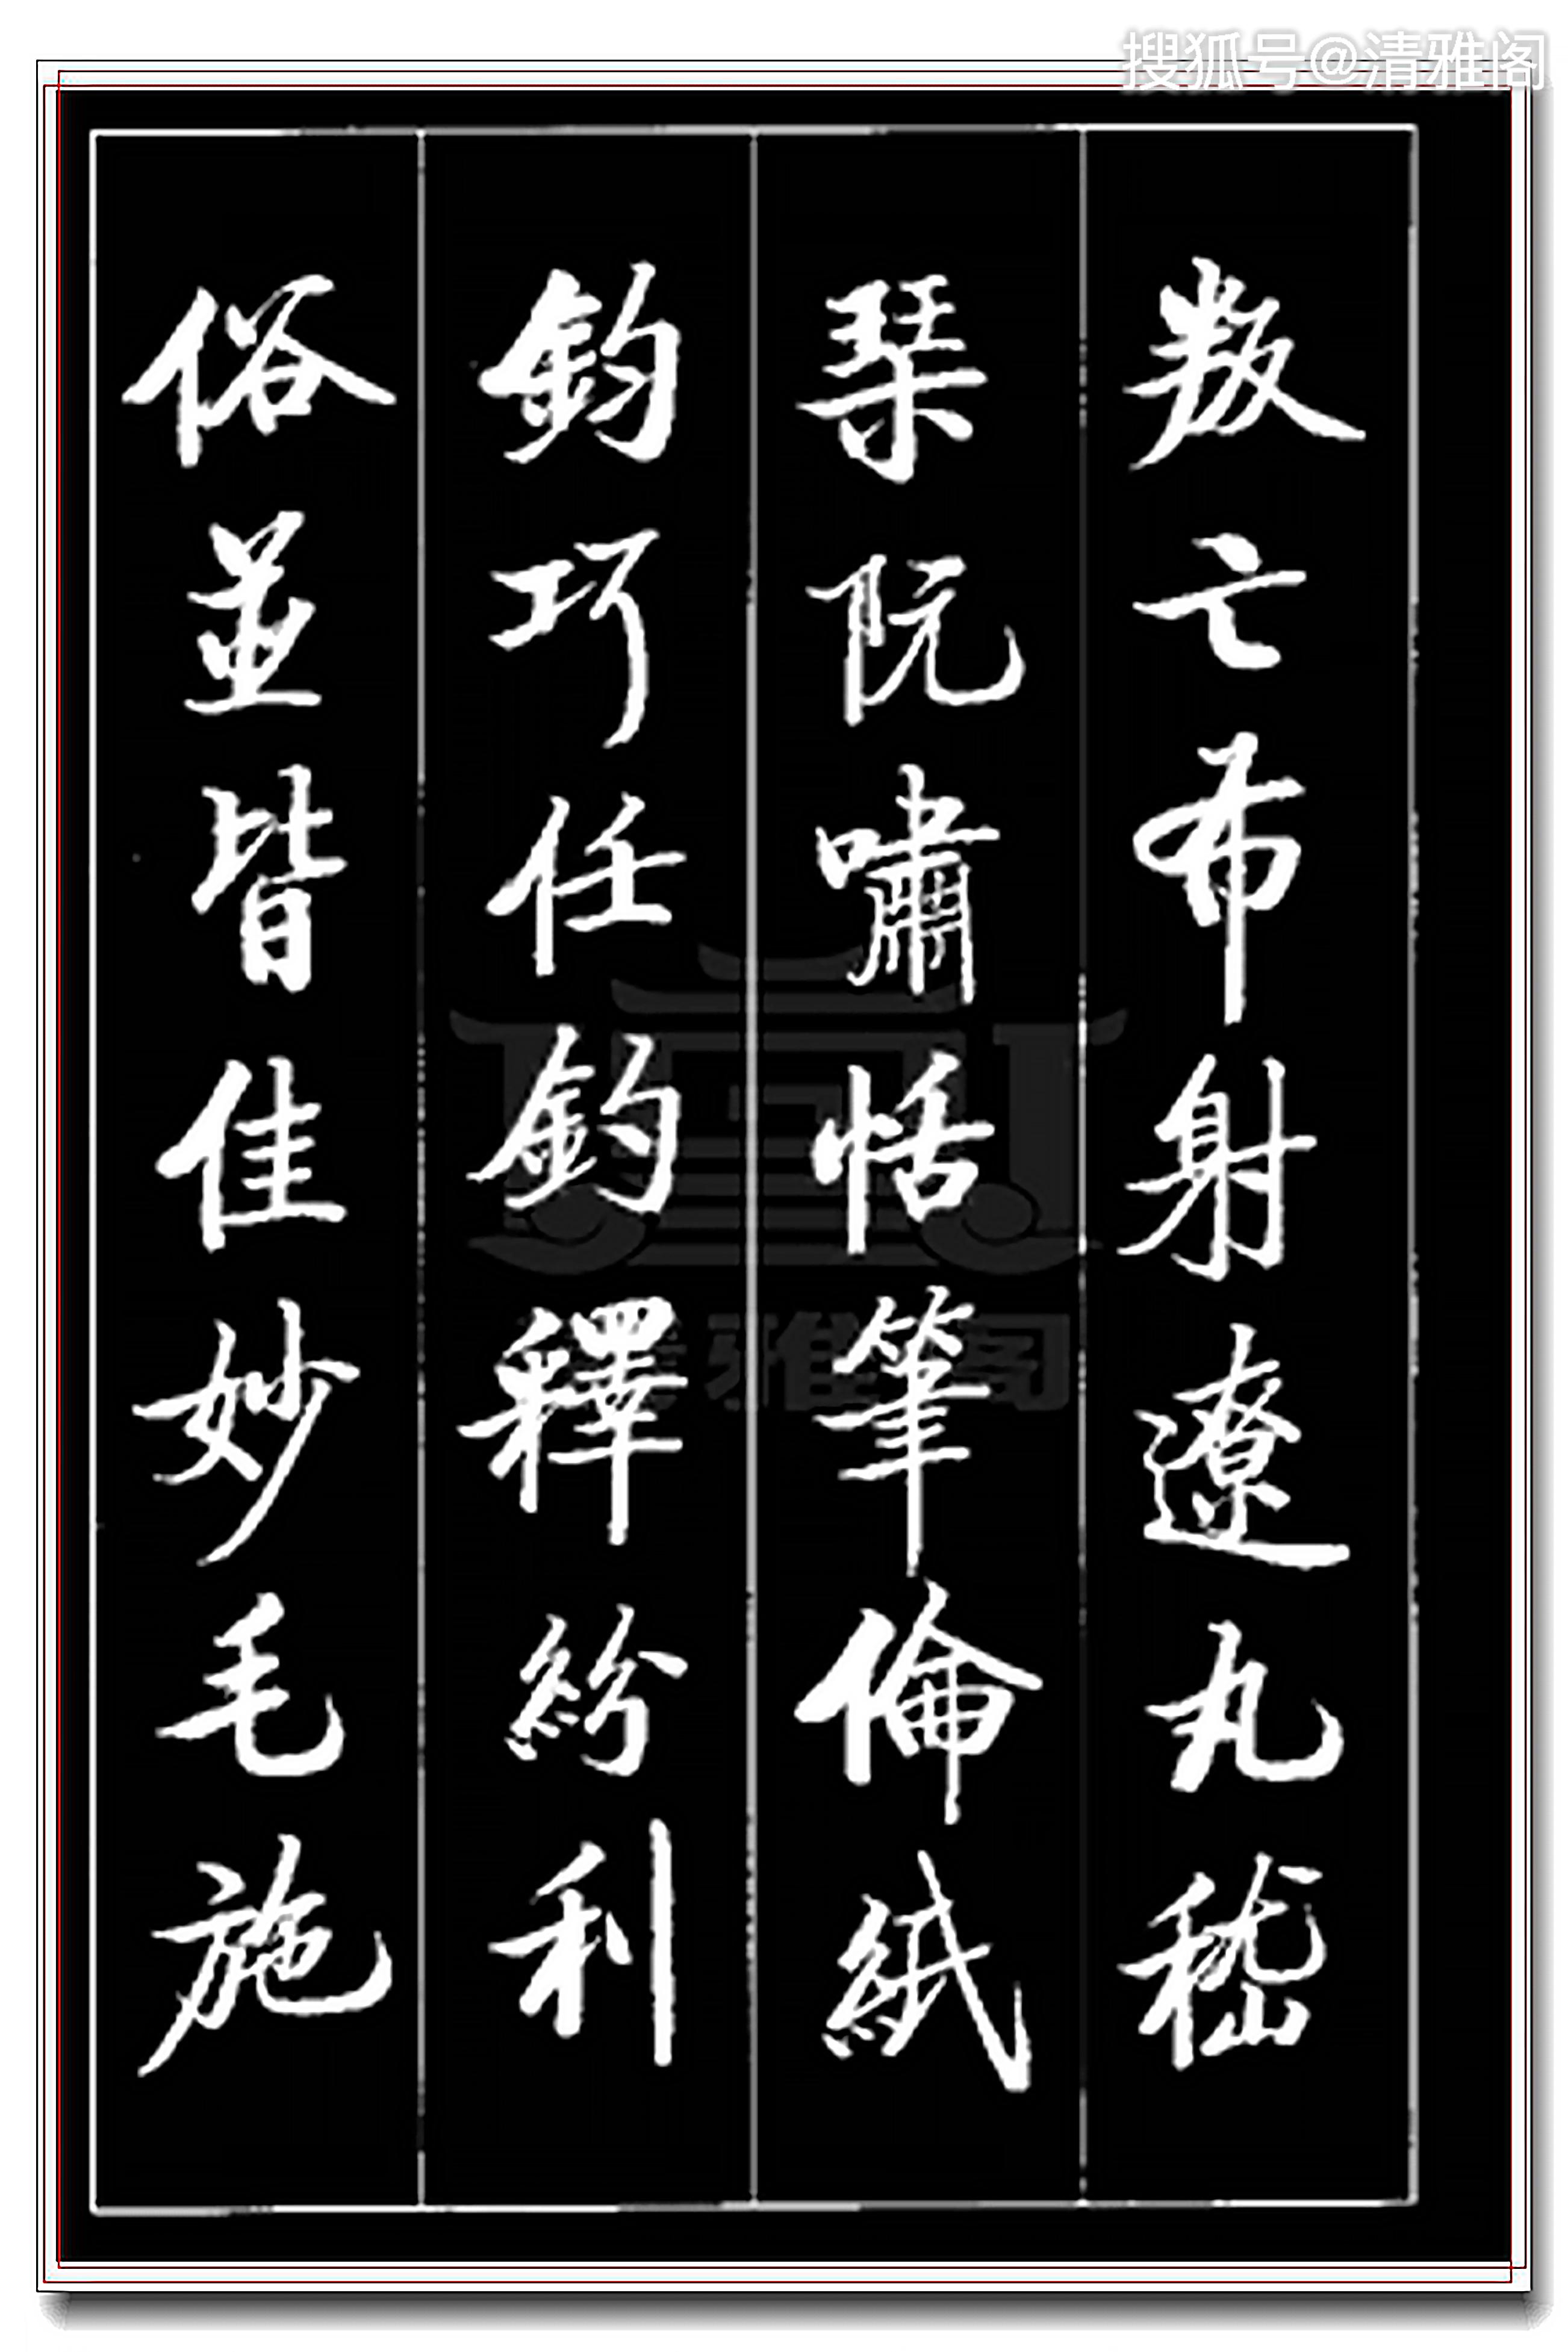 搜狐号@清雅阁
叛亡布射遼丸嵇
琹阮嘯恬筆倫紙
鈞巧任釣釋紛利
俗並皆佳妙毛施
雅阁